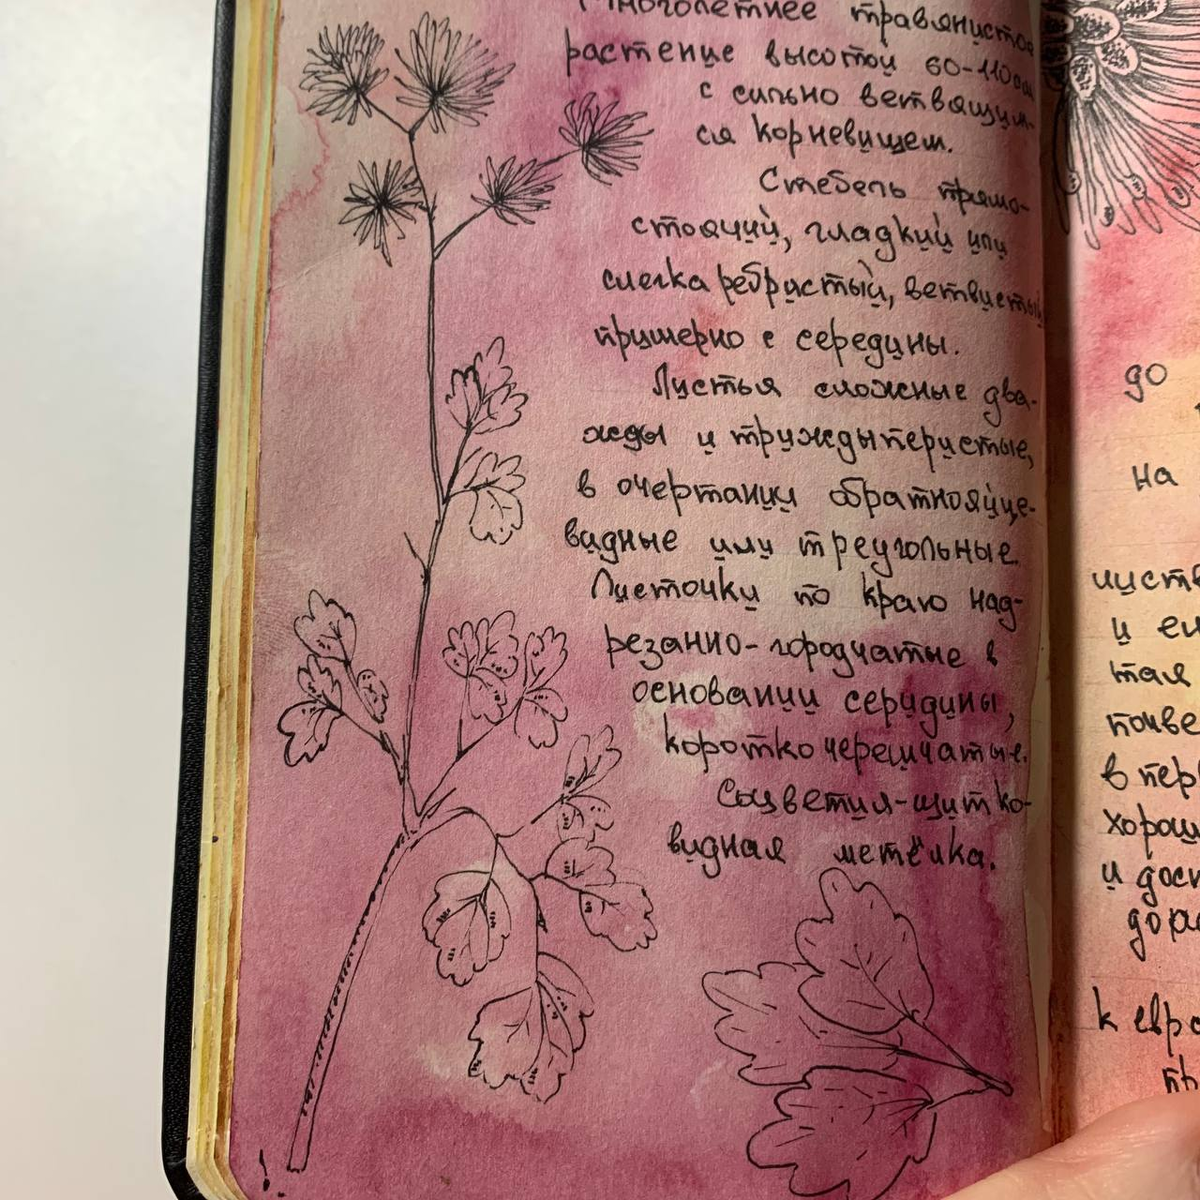 Многолетнее травянистое
растение высотой 60-110см
с сильно ветвящим-
ся корневищем.
Стебель прямо-
стоячий, гладкий или
слегка ребристый, ветвистый
примерно с середины.
Листья сложные два-
жды и триждыперистые,
в очертании обратнояйце-
видные или треугольные.
Листочки по краю над-
резанно-городчатые в
основании серидины,
коротко черешчатые.
Соцветия-щитко-
видная метёлка.
до
на
и
тая
в пер
хорош
и дос
к евро